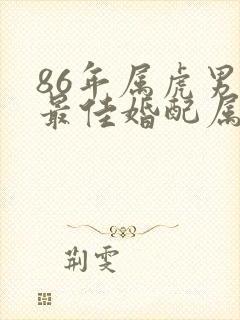 86年属虎男
最佳婚配属
荆雯